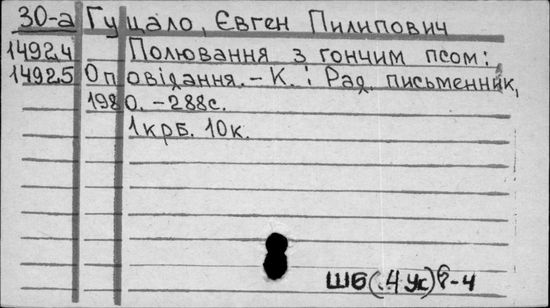 30-а Гуцало, Євген Пилипович
14924 Полювання з гончим псом:
14925 Оповідання. – К.: Рад. письменник,
1980. – 288с.
1крб. 10к.
ШБ(.4Ук)8-4